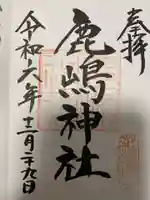 奉拝
鹿嶋神社
令和六年十二月二十九日